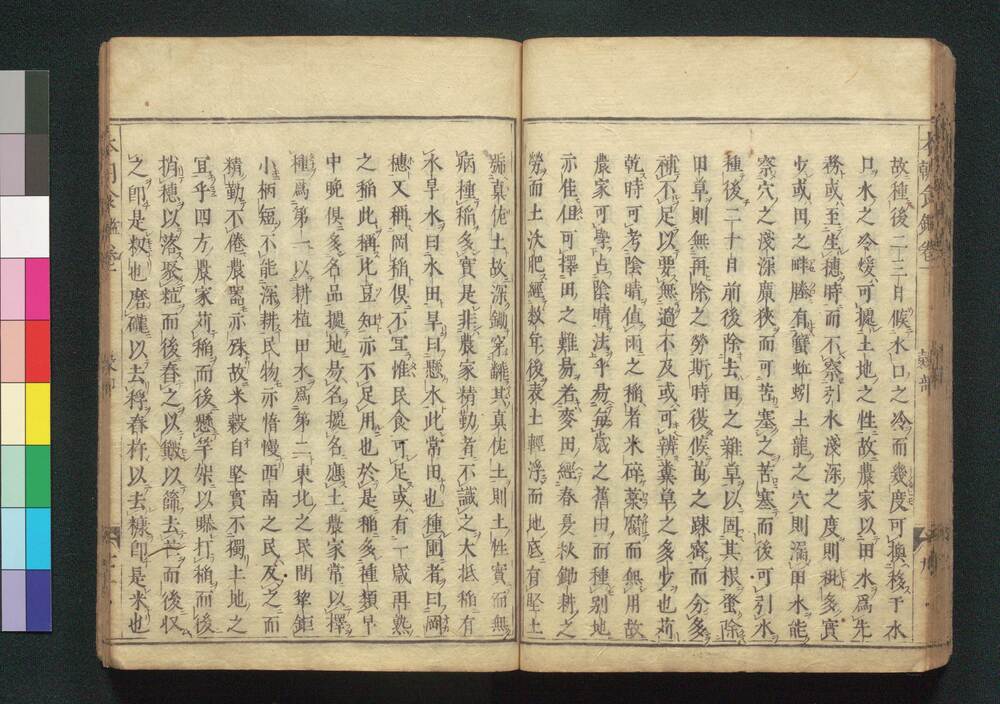 故種後二三日候水口之冷而幾度可換移于水
口水之冷煖可據土地之性故農家以田水爲先
務或至生穗時而不察引水淺深之度則秕多實
少或田之畔塍有蟹蚯蚓土龍之穴則漏田水能
察穴之淺深廣狹而可苦塞之苦塞而後可引水
種後二十日前後除去田之雜草以固其根蛩除
田草則無再除之勞斯時復候苗之疎密而分多
補不足以要無過不及或可辨糞草之多少也苅
乾時可考陰晴値雨之稲者米碎藁腐而無用故
農家可學占陰晴法乎易毎歳之舊田而種別地
亦佳但可擇田之難易若麥田經春夏秋鋤耕之
勞而土次肥經數年後表土輕浮而地底有堅土
号真佐土故深鋤穿雜其真佐土則土性實而無
病種稲多實是非農家精勤者不識之大抵稲有
水旱水曰水田旱曰懸水此常田也種圃者曰岡
穗又稱岡稲倶不宜惟民食可足或有一歳再熟
之稲此稱比豆知亦不足用也於是稲多種類早
中晚倶多名品據地易名據名應土農家常以擇
種爲第一以耕植田水爲第二東北之民間犂鉅
小柄短不能深耕民物亦惰慢西南之民及之而
精勤不倦農器亦殊故米穀自堅實不獨土地之
宜乎四方農家苅稲而後懸竿架以曝打稲而後
捎穗以落聚粒而後舂之以簸以篩去芒而後収
之卽是籾也磨礲以去稃舂杵以去糠卽是米也